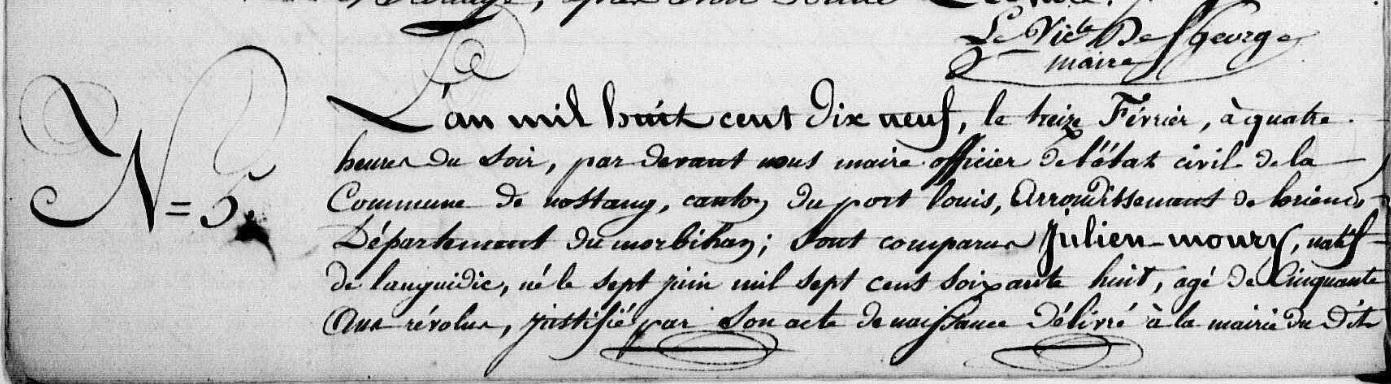 Le Victe De St George
maire
N = 5.
L'an mil huit cent dix neuf, le treize Février, à quatre
heures du soir, par devant nous maire officier de l'état civil de la
Commune de nostang, canton du port louis, Arrondissement de lorient
Département du morbihan; sont comparus Julien moury, natif
de languidic, né le sept juin mil sept cent soixante huit, agé de Cinquante
Ans révolus, justifié par son acte de naissance délivré à la mairie du dit